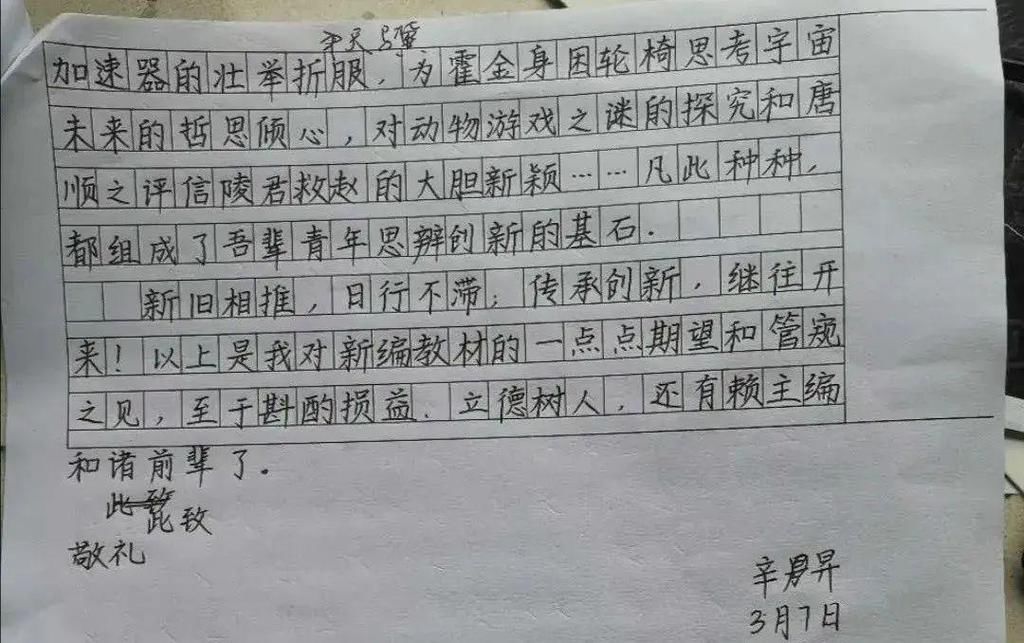 加速器的壮举折服，为霍金身困轮椅思考宇宙
未来的哲思倾心，对动物游戏之谜的探究和唐
顺之评信陵君救赵的大胆新颖……凡此种种，
都组成了吾辈青年思辨创新的基石．
新旧相推，日行不滞；传承创新，继往开
来！以上是我对新编教材的一点点期望和管窥
之见，至于斟酌损益．立德树人，还有赖主编
和诸前辈了．
此致
敬礼
辛昇
3月7日